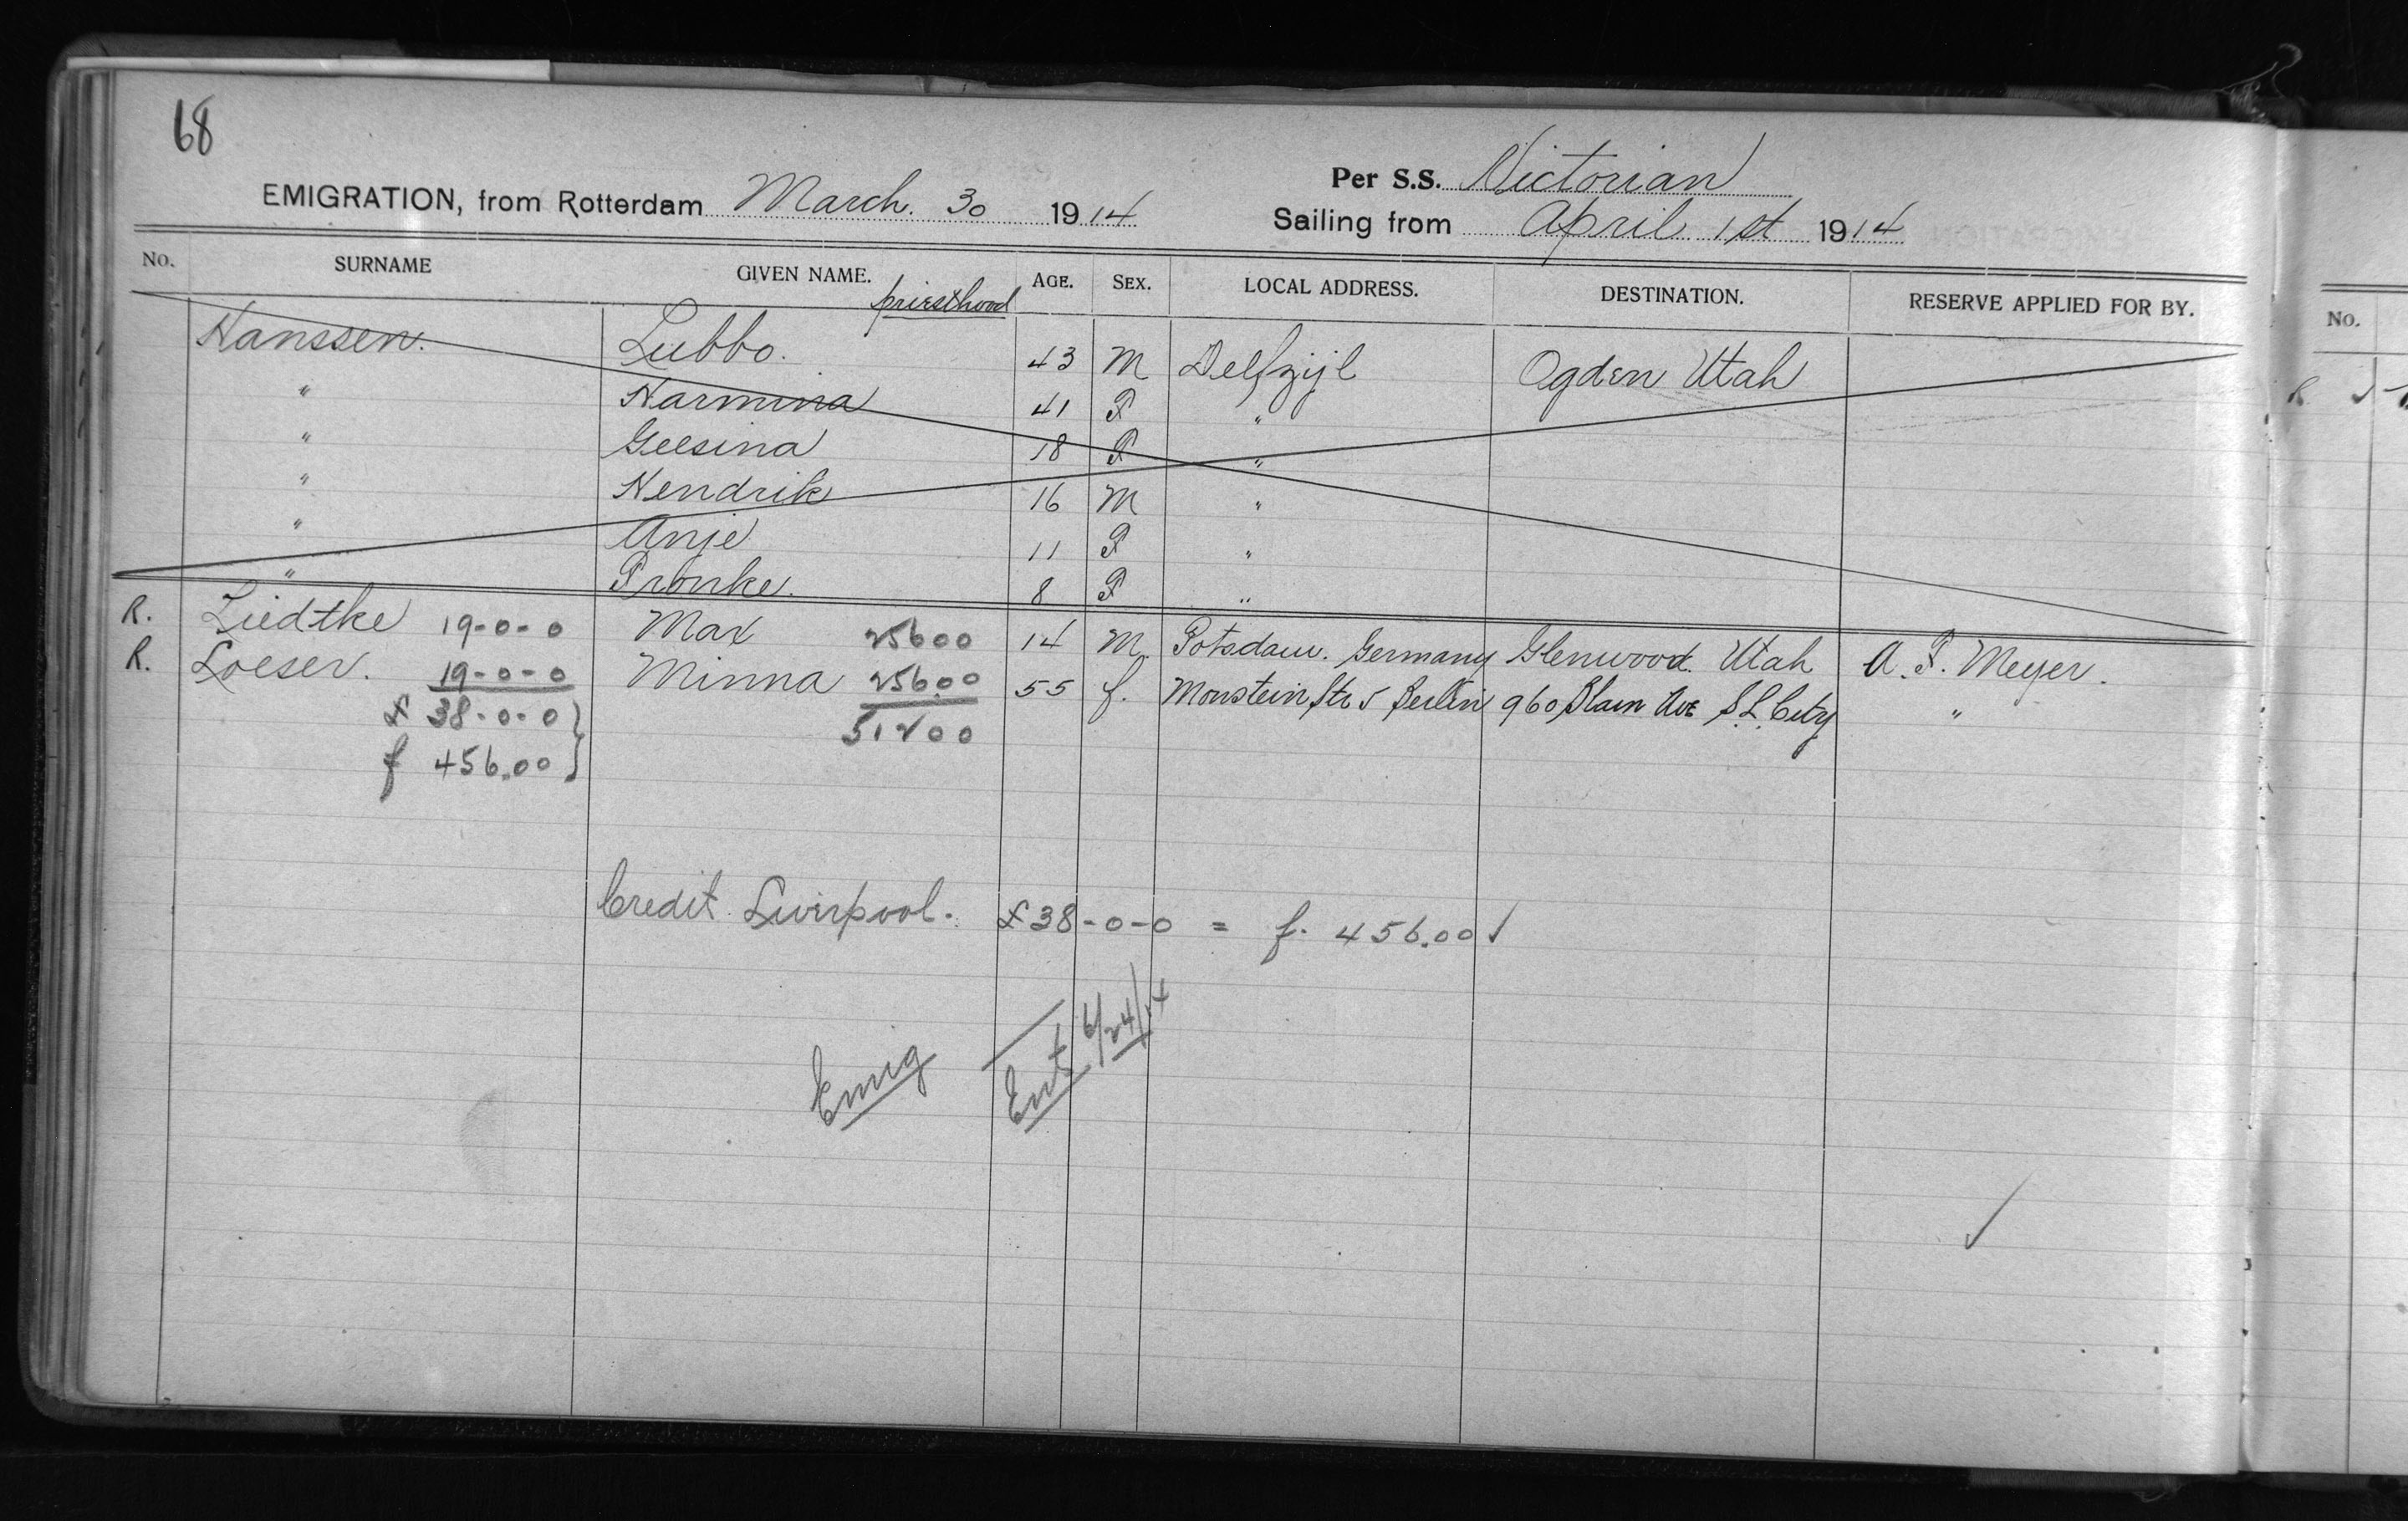 68
EMIGRATION, from Rotterdam March. 30 1914
Per S.S. Victorian
Sailing from April 1st 1914
No. SURNAME GIVEN NAME. priesthood AGE. SEX. LOCAL ADDRESS. DESTINATION. RESERVE APPLIED FOR BY.
Hanssen. Lubbo. 43 M Delfzijl Ogden Utah
" Harmina 41 F "
" Geesina 18 F "
" Hendrik 16 M "
" Anje 11 F "
" 8 F "
R. Liedtke 19-0-0 Max 256 00 14 M. Potsdam. Germany Glenwood. Utah A. F. Meyer.
R. Loeser. 19-0-0 Minna 256.00 55 f. Str 5 Berlin 960 Ave S.L. City "
£ 38-0-0 } 512 00
f 456.00 }
Credit Liverpool. £38-0-0 = f. 456.00 ✓
Emig Ent 6/24/14
✓
No.
R. ✓